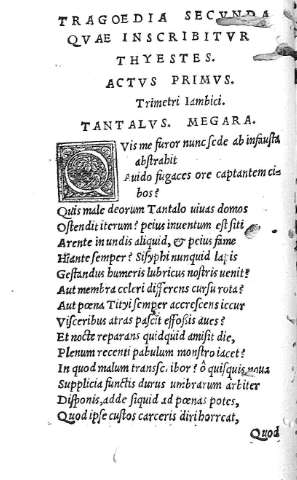 TRAGOEDIA SECVNDA
QVAE INSCRIBITVR
THYESTES.
ACTVS PRIMVS.
Trimetri Iambici.
TANTALVS. MEGARA.
QVis me furor nunc sede ab infausta
abstrahit
Auido fugaces ore captantem ci-
bos?
Quis male deorum Tantalo uiuas domos
Ostendit iterum? peius inuentum est siti
Arente in undis aliquid, & peius fame
Hiante semper? Sisyphi nunquid lapis
Gestandus humeris lubricus nostris uenit?
Aut membra celeri differens cursu rota?
Aut pœna Tityi semper accrescens iecur
Visceribus atras pascit effossis aues?
Et nocte reparans quidquid amisit die,
Plenum recenti pabulum monstro iacet?
In quod malum transscribor? ô quisquis noua
Supplicia functis durus umbrarum arbiter
Disponis, adde siquid ad pœnas potes,
Quod ipse custos carceris diri horreat,
Quod